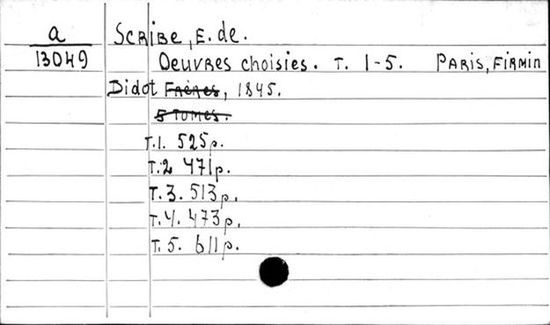 a SCRIBE, E. de.
13049 Oeuvres choisies. T. 1-5. PARIS, FIRMIN
Didot Frères, 1845.
5 TOMES.
T.1. 525p.
T.2 471p.
T.3. 513p.
T.4. 473p.
T.5. 611p.